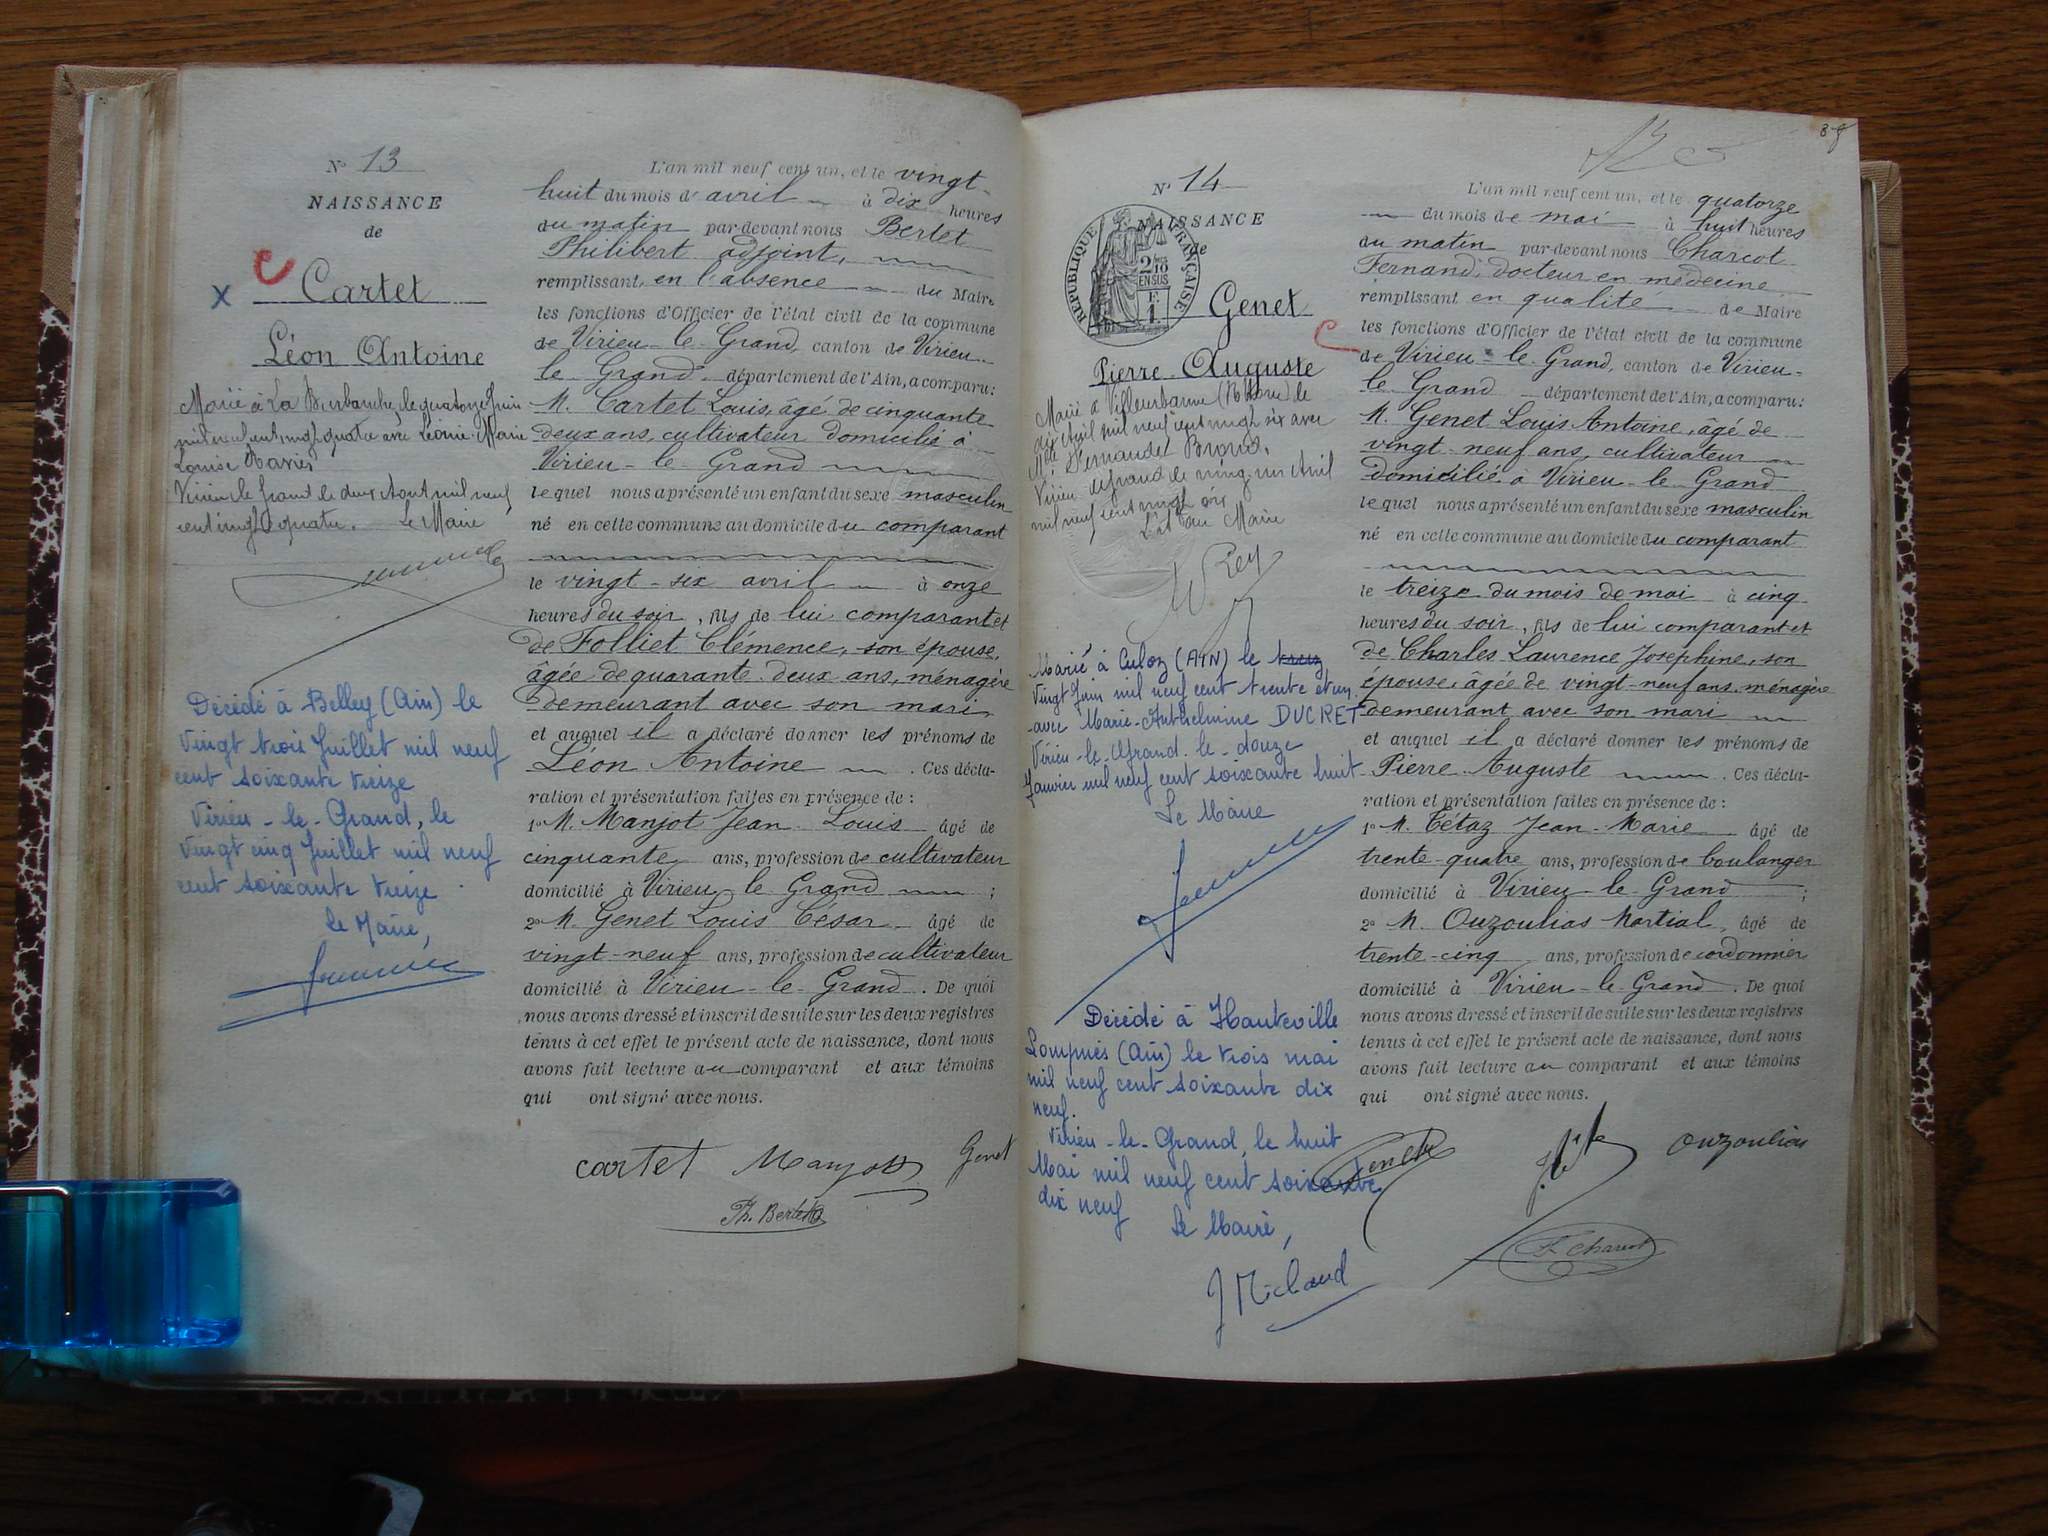 N° 13
NAISSANCE
de
Cartet
Léon Antoine
Marié à La Burbanche, le quatorze Juin
mil neuf cent vingt quatre avec Léonie Marie
Louise
Virieu le Grand le deux Aout mil neuf
cent vingt quatre. Le Maire
Décédé à Belley (Ain) le
vingt trois Juillet mil neuf
cent soixante treize
Virieu-le-Grand, le
vingt cinq Juillet mil neuf
cent soixante treize.
Le Maire,
L'an mil neuf cent un, et le vingt-
huit du mois d'avril à dix heures
du matin par-devant nous Bertet
Philibert adjoint,
remplissant, en l'absence du Maire
les fonctions d'Officier de l'état civil de la commune
de Virieu-le-Grand, canton de Virieu-
le Grand département de l'Ain, a comparu:
M. Cartet Louis, âgé de cinquante
deux ans, cultivateur domicilié à
Virieu-le Grand
lequel nous a présenté un enfant du sexe masculin
né en cette commune au domicile du comparant
le vingt-six avril à onze
heures du soir, fils de lui comparant et
de Folliet Clémence, son épouse,
âgée de quarante deux ans, ménagère
demeurant avec son mari,
et auquel il a déclaré donner les prénoms de
Léon Antoine. Ces décla-
ration et présentation faites en présence de:
1° M. Manjot Jean Louis âgé de
cinquante ans, profession de cultivateur
domicilié à Virieu le Grand;
2° M. Genet Louis César âgé de
vingt-neuf ans, profession de cultivateur
domicilié à Virieu-le-Grand. De quoi
nous avons dressé et inscrit de suite sur les deux registres
tenus à cet effet le présent acte de naissance, dont nous
avons fait lecture au comparant et aux témoins
qui ont signé avec nous.
Cartet Manjot Genet
Ph. Bertet
N° 14
NAISSANCE
de
RÉPUBLIQUE FRANÇAISE
2/10 EN SUS
Genet
Pierre Auguste
Marié à Villeurbanne (Rhône) le
dix Avril mil neuf cent vingt six avec
Mlle Fernande
Virieu le grand le vingt un Avril
mil neuf cent vingt six
Le Maire
Rey
Marié à Culoz (AIN) le treiz
vingt Juin mil neuf cent trente et un
avec Marie-Anthelmine DUCRET
Virieu-le-Grand le douze
Janvier mil neuf cent soixante huit
Le Maire
Décédé à Hauteville
Lompnes (Ain) le trois mai
mil neuf cent soixante dix
neuf.
Virieu-le-Grand, le huit
Mai mil neuf cent soixante
dix neuf
Le Maire,
J Michaud
L'an mil neuf cent un, et le quatorze
du mois de mai à huit heures
du matin par-devant nous Charcot
Fernand, docteur en médecine
remplissant en qualité de Maire
les fonctions d'Officier de l'état civil de la commune
de Virieu-le Grand, canton de Virieu-
le Grand département de l'Ain, a comparu:
M. Genet Louis Antoine, âgé de
vingt-neuf ans, cultivateur
domicilié à Virieu-le-Grand
lequel nous a présenté un enfant du sexe masculin
né en cette commune au domicile du comparant
le treize du mois de mai à cinq
heures du soir, fils de lui comparant et
de Charles Laurence Joséphine, son
épouse, âgée de vingt-neuf ans, ménagère
demeurant avec son mari
et auquel il a déclaré donner les prénoms de
Pierre Auguste. Ces décla-
ration et présentation faites en présence de:
1° M. Tétaz Jean-Marie âgé de
trente-quatre ans, profession de boulanger
domicilié à Virieu-le-Grand;
2° M. Ouzoulias Martial, âgé de
trente-cinq ans, profession de cordonnier
domicilié à Virieu-le-Grand. De quoi
nous avons dressé et inscrit de suite sur les deux registres
tenus à cet effet le présent acte de naissance, dont nous
avons fait lecture au comparant et aux témoins
qui ont signé avec nous.
Genet Ouzoulias
F. Charcot